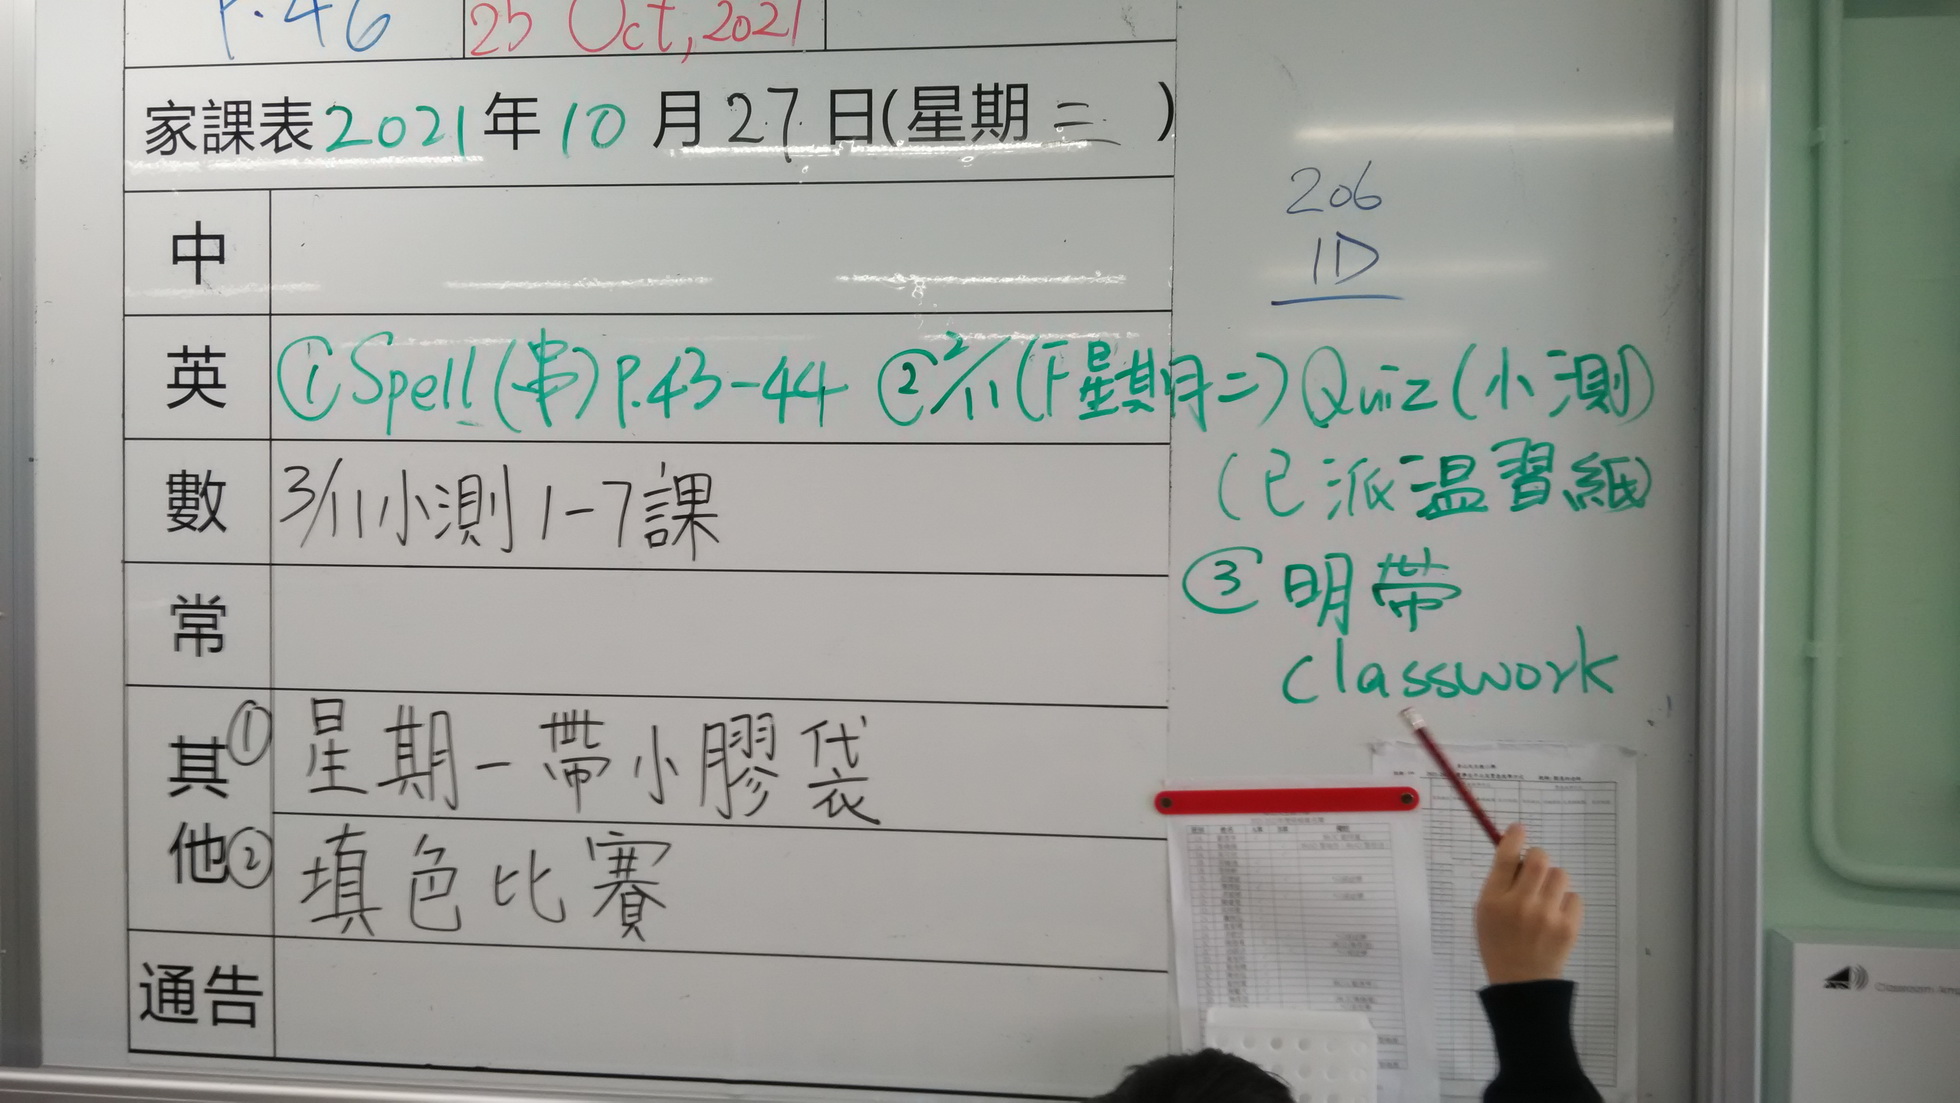 P.46
25 Oct, 2021
家課表2021年10月27日(星期二 )
206
1D
中
英 ①Spell(串)P.43-44 ②2/11(下星期二)Quiz(小測)
(已派温習紙)
數 3/11小測1-7課
③明帶
classwork
常
其他
①星期一帶小膠袋
②填色比賽
通告